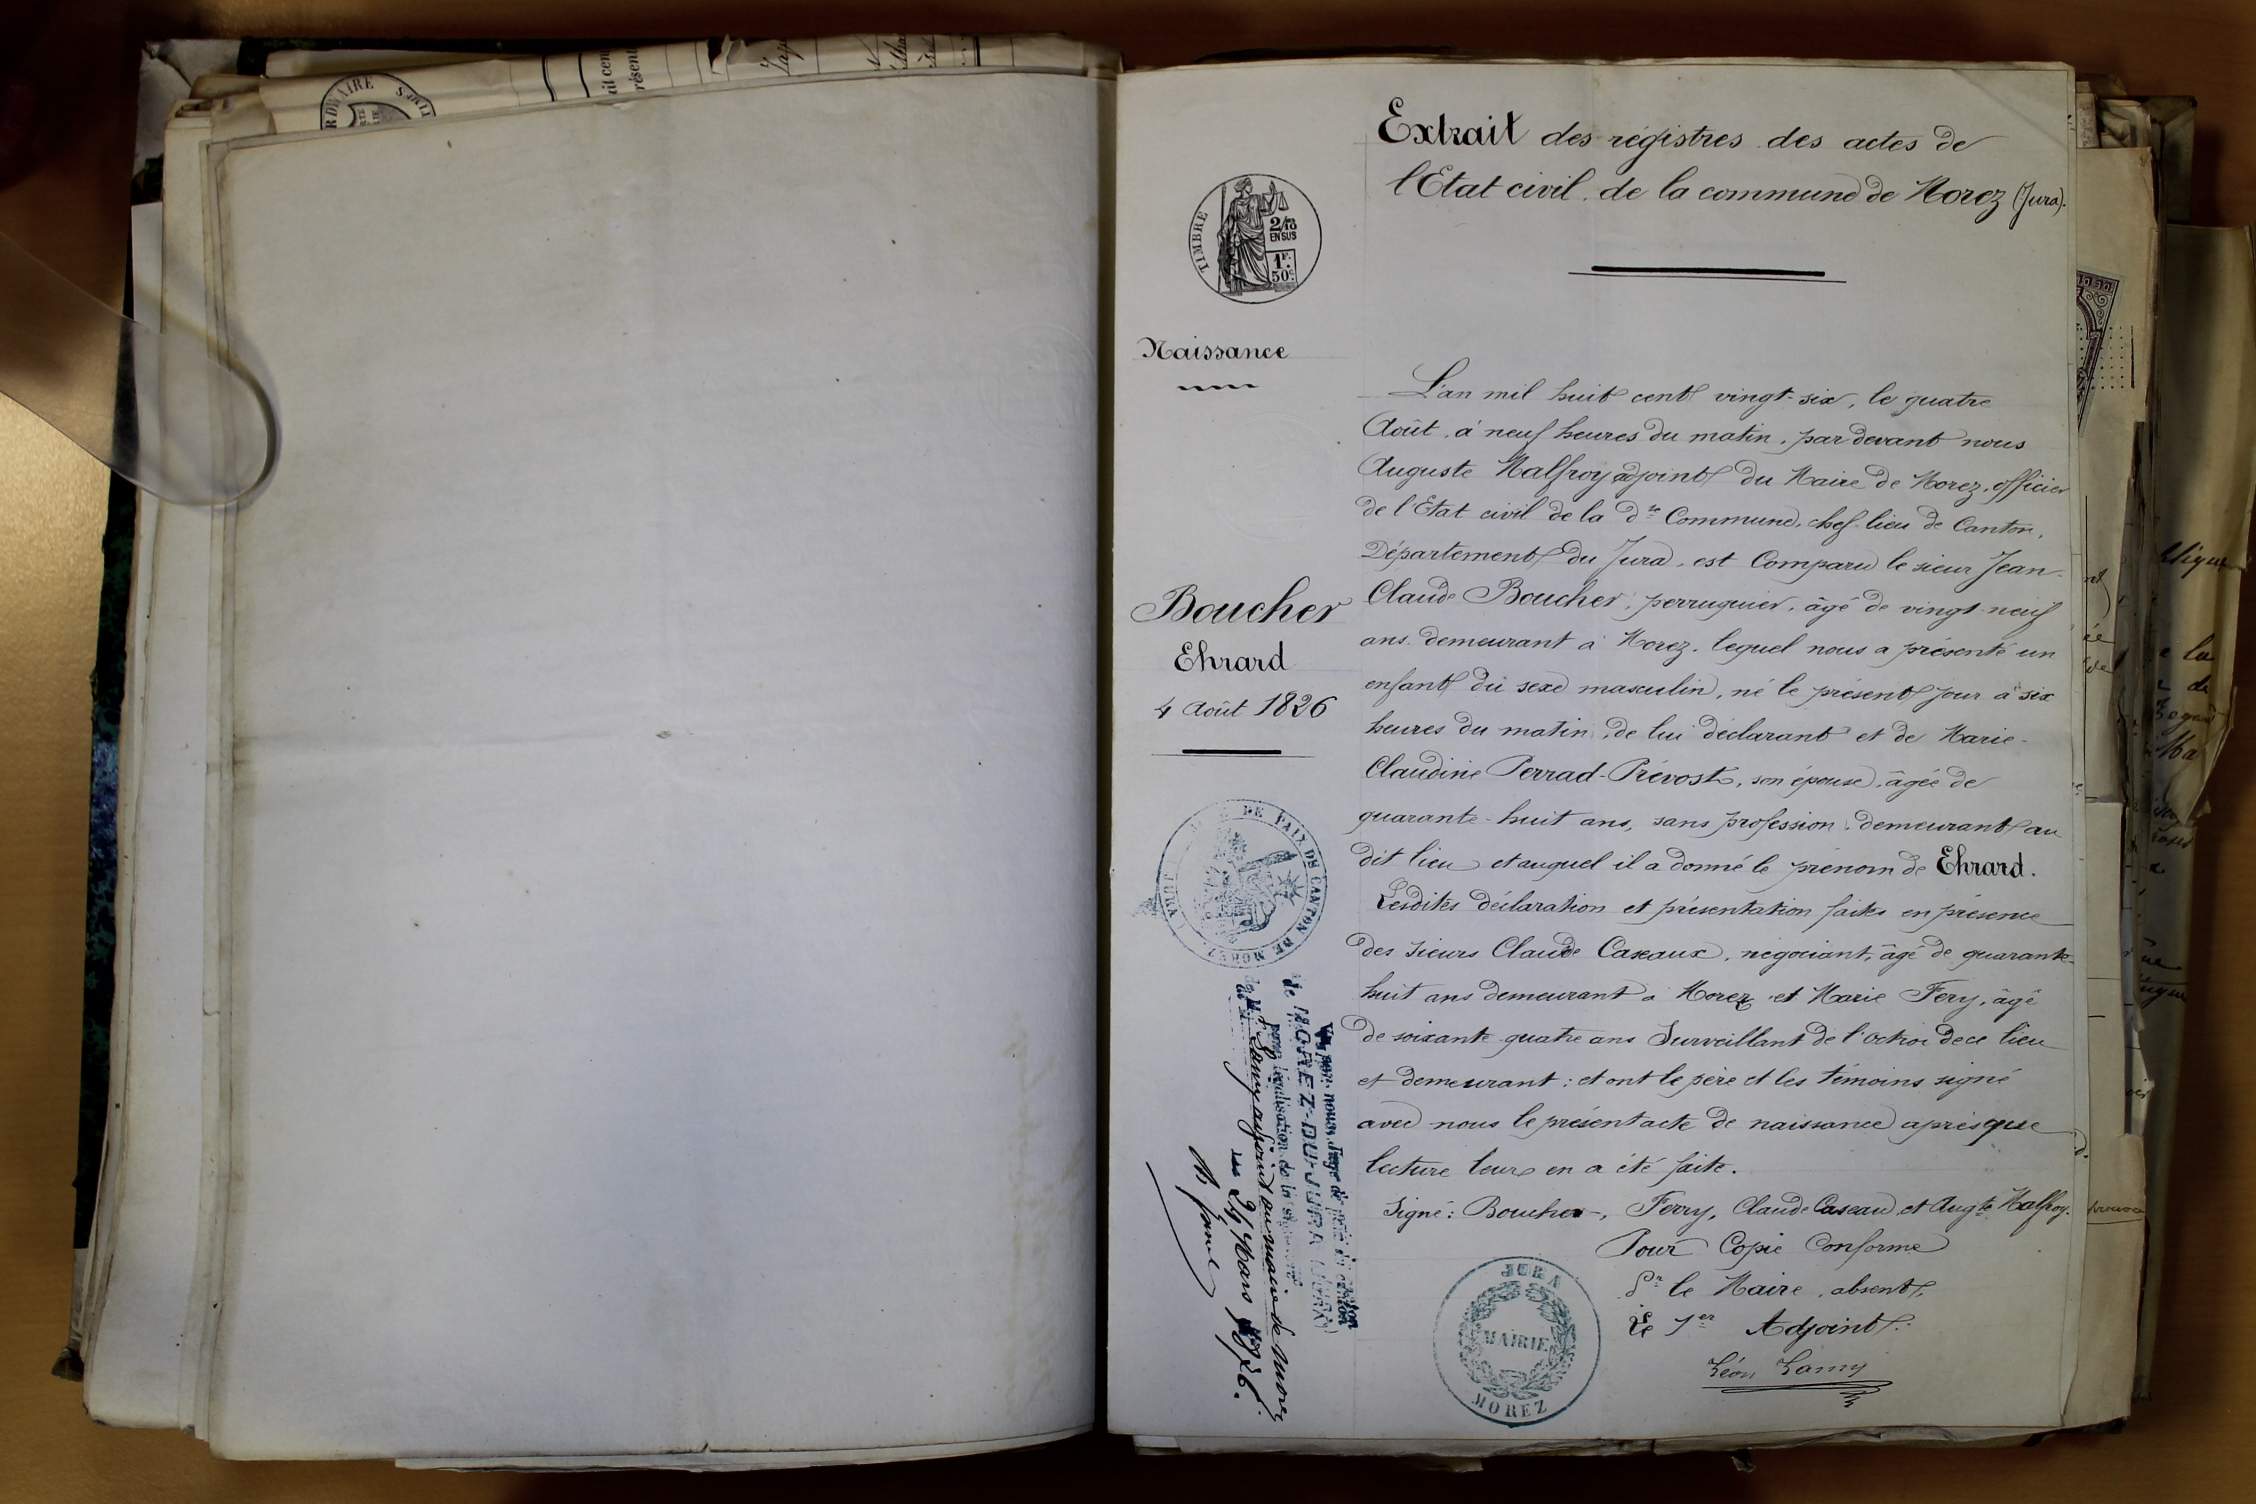 RDINAIRE
Extrait des régistres des actes de
l'Etat civil de la commune de Morez (Jura).
TIMBRE
2/10
EN SUS
1F.
50c.
Naissance
L'an mil huit cent vingt-six, le quatre
Août, à neuf heures du matin, par devant nous
Auguste Malfroy adjoint du Maire de Morez, officier
de l'Etat civil de la dte Commune, chef-lieu de Canton,
Département du Jura, est Comparu le sieur Jean-
Claude Boucher, perruquier, âgé de vingt-neuf
ans demeurant à Morez, lequel nous a présenté un
enfant du sexe masculin, né le présent jour à six
heures du matin, de lui déclarant et de Marie-
Claudine Perrad-Prévost, son épouse, âgée de
quarante-huit ans, sans profession, demeurant au
dit lieu et auquel il a donné le prénom de Ehrard.
Lesdites déclaration et présentation faites en présence
des sieurs Claude Caseaux, négociant, âgé de quarante-
huit ans demeurant à Morez et Marie Fery, âgé
de soixante-quatre ans Surveillant de l'octroi de ce lieu
et demeurant : et ont le père et les témoins signé
avec nous le présent acte de naissance après que
lecture leur en a été faite.
Signé : Boucher, Ferry, Claude Caseau et Augte Malfroy.
Pour Copie Conforme
Pr le Maire, absent,
Le 1er Adjoint.
Léon Lamy
Boucher
Ehrard
4 Août 1826
DE PAIX DU CANTON DE MOREZ
JURA
Vu par nous, Juge de paix du canton
de MOREZ-DU-JURA (JURA)
pour légalisation de la signature
de Mr Lamy adjoint au maire de Morez
le 24 Mars 1876.
JURA
MAIRIE
MOREZ